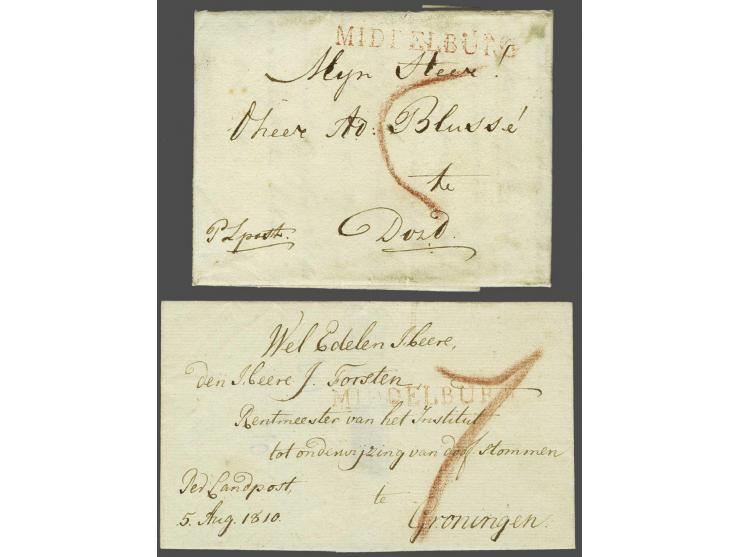 MIDDELBURG
Mijn Heer.
Dheer Ad: Blussé
te
Dord.
P Lpost.
5
Wel Edelen Heere,
den Heere J. Forsten,
MIDDELBURG
Rentmeester van het Institut
tot onderwijzing van doof stommen
te
Groningen.
Per Landpost,
5. Aug. 1810.
7